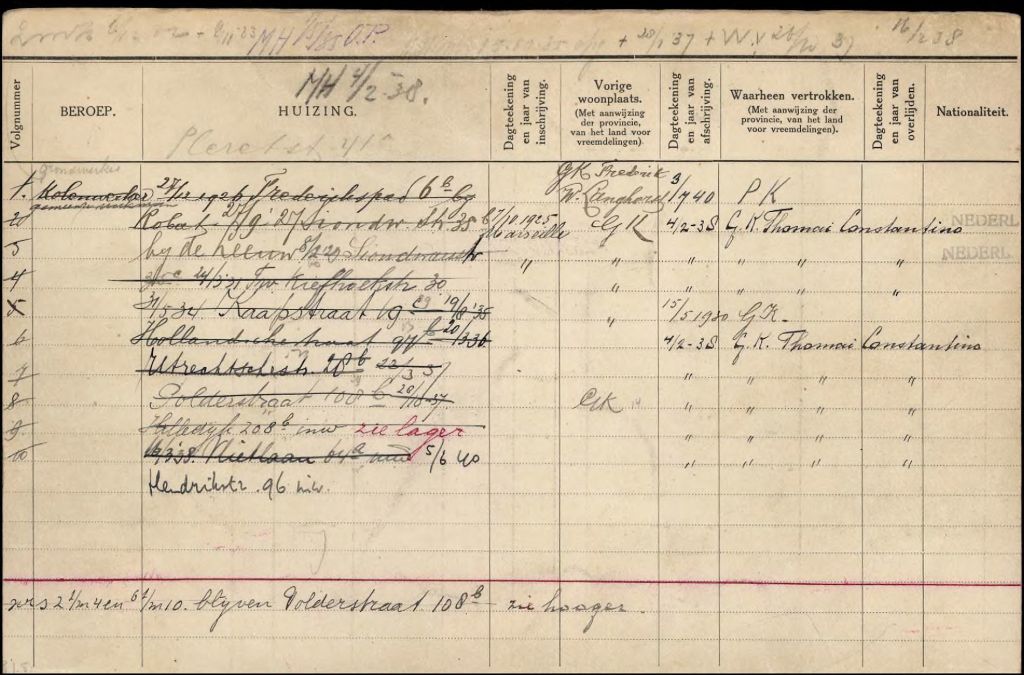 MH 15/5 35 O.P. + 20/1 37 + W.V 26/10 37 16/2 38
MH 4/2-38.
Volgnummer
BEROEP.
HUIZING.
Dagteekening en jaar van inschrijving.
Vorige woonplaats.
(Met aanwijzing der provincie, van het land voor vreemdelingen).
Dagteekening en jaar van afschrijving.
Waarheen vertrokken.
(Met aanwijzing der provincie, van het land voor vreemdelingen).
Dagteekening en jaar van overlijden.
Nationaliteit.
grondwerker
GK Frederik
1. 27/12 1926 Frederikspad 6 b by 3/7 40 P K
Robat 27/9 '27 35 b 17/10 1925 Marseille GK 4/2-38 G.K. Thomai Constantina NEDERL
3 by de Leeuw 8/2 29 " " " " NEDERL
4 24/5 31 Tw. Kiefhoekstr 30 " " " "
5 31/5 34 Kaapstraat 19 19/8 '35 " 15/5 1930 G.K.
6 Hollandschestraat 97 b 20/1 36 4/2-38 G.K. Thomai Constantina
7 Utrechtschestr. 28 b 22/3 37 " " "
8 Polderstraat 108 b 20/10 37 GK " " "
9 Hilledijk 208 b inw zie lager " " "
10 Rietlaan 64 a inw 5/6 40 " " "
Hendrikstr. 96 inw.
nrs 2 t/m 4 en 6 t/m 10. blyven Polderstraat 108 b zie hooger.